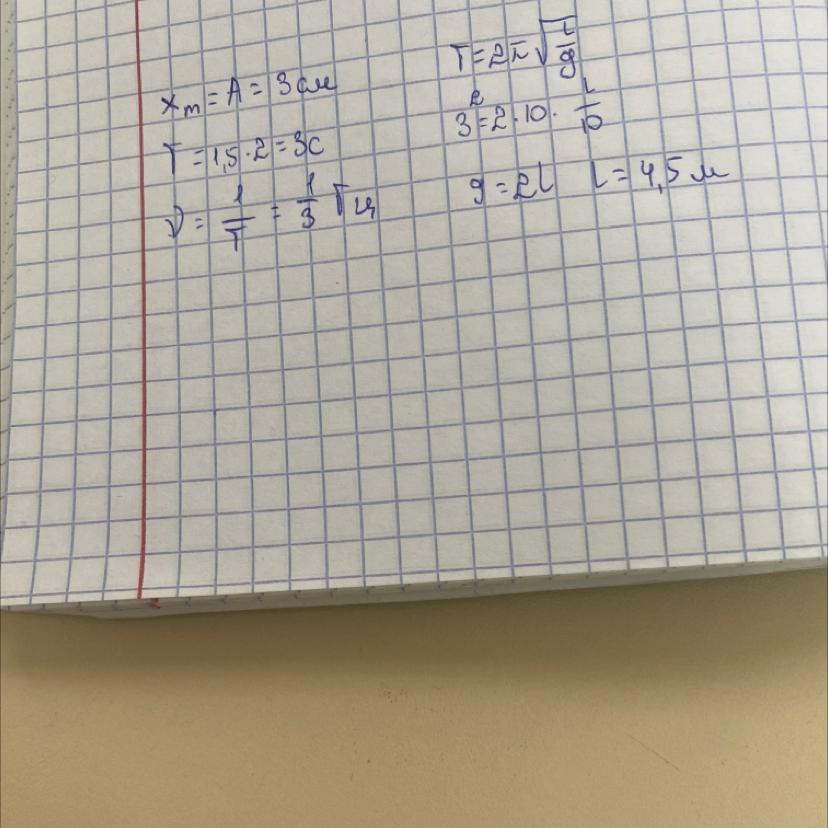 x_m = A = 3 см
T = 1,5 · 2 = 3с
ν = 1/T = 1/3 Гц
T = 2π√(l/g)
3² = 2 · 10 · l/10
9 = 2l l = 4,5 м